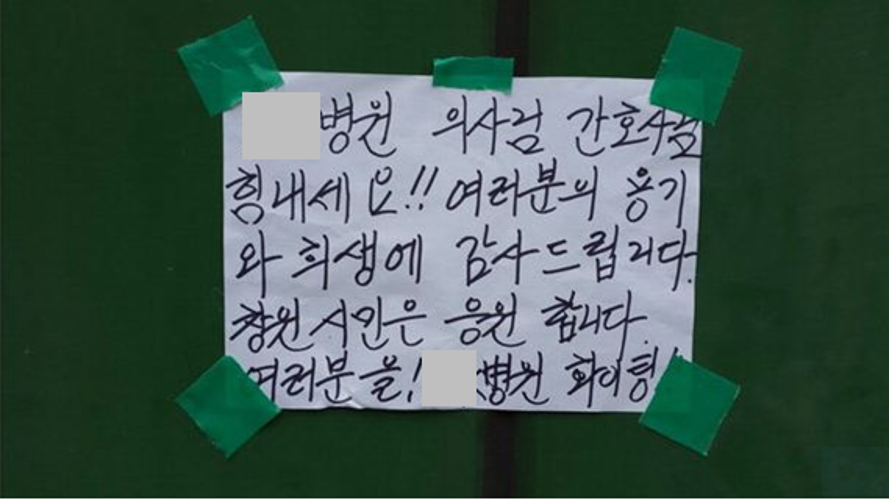 병원 의사님 간호사님
힘내세요!! 여러분의 용기
와 희생에 감사드립니다.
창원시민은 응원 합니다.
여러분을! 병원 화이팅!